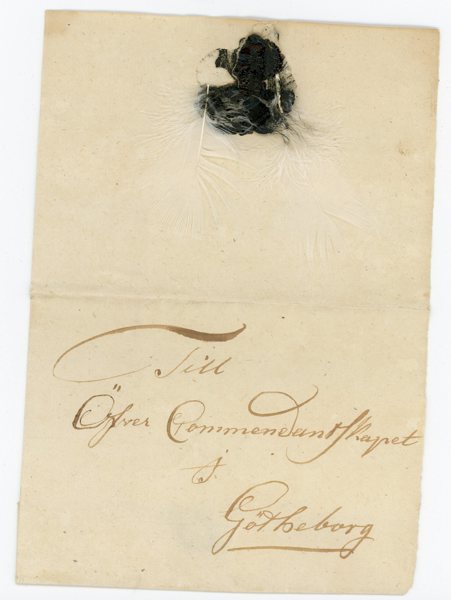 Till
Öfver Commendantskapet
i
Götheborg